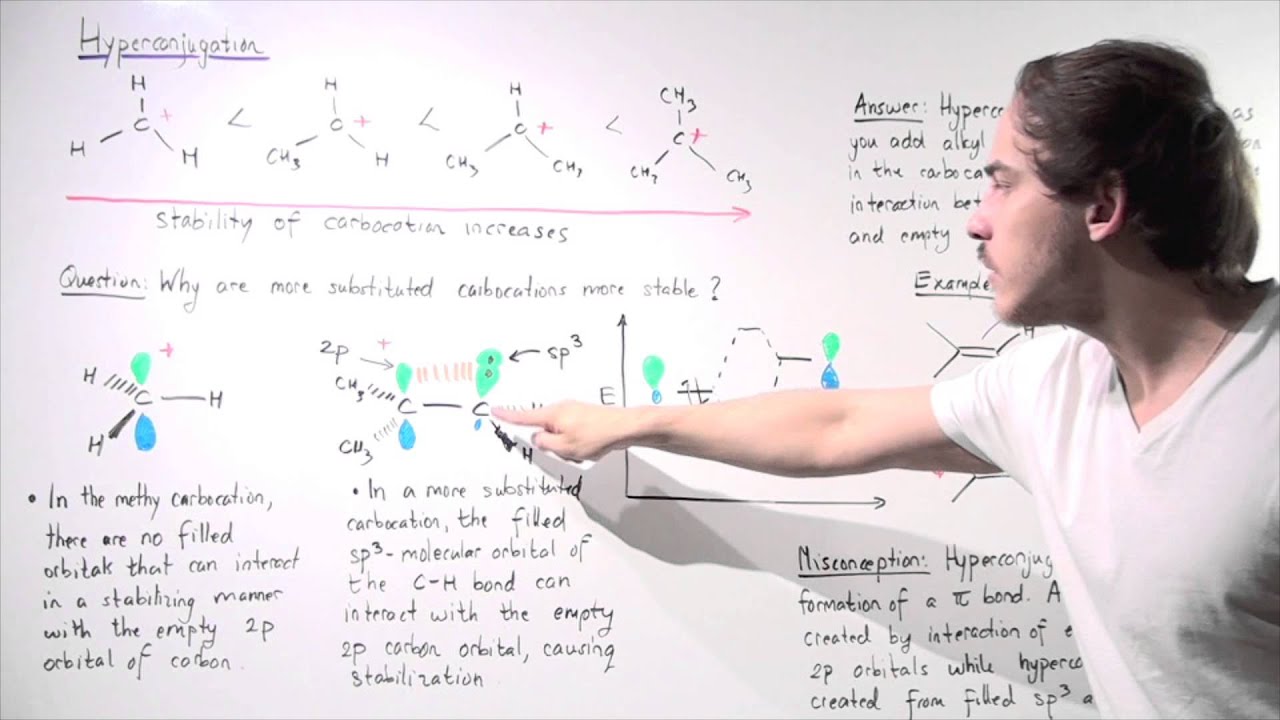 Hyperconjugation
H H H CH3
C + < C + < C + < C +
H H CH3 H CH3 CH3 CH3 CH3
stability of carbocation increases
Question: Why are more substituted carbocations more stable?
+
H C H
H
2p + sp3
CH3 C C H
CH3 H
• In the methy carbocation,
there are no filled
orbitals that can interact
in a stabilizing manner
with the empty 2p
orbital of carbon.
• In a more substituted
carbocation, the filled
sp3-molecular orbital of
the C-H bond can
interact with the empty
2p carbon orbital, causing
stabilization
E
Answer: as
you add alkyl
in the
interaction
and empty
Example
H
+
Misconception:
formation of a π bond. A
created by interaction of
2p orbitals while
created from filled sp3